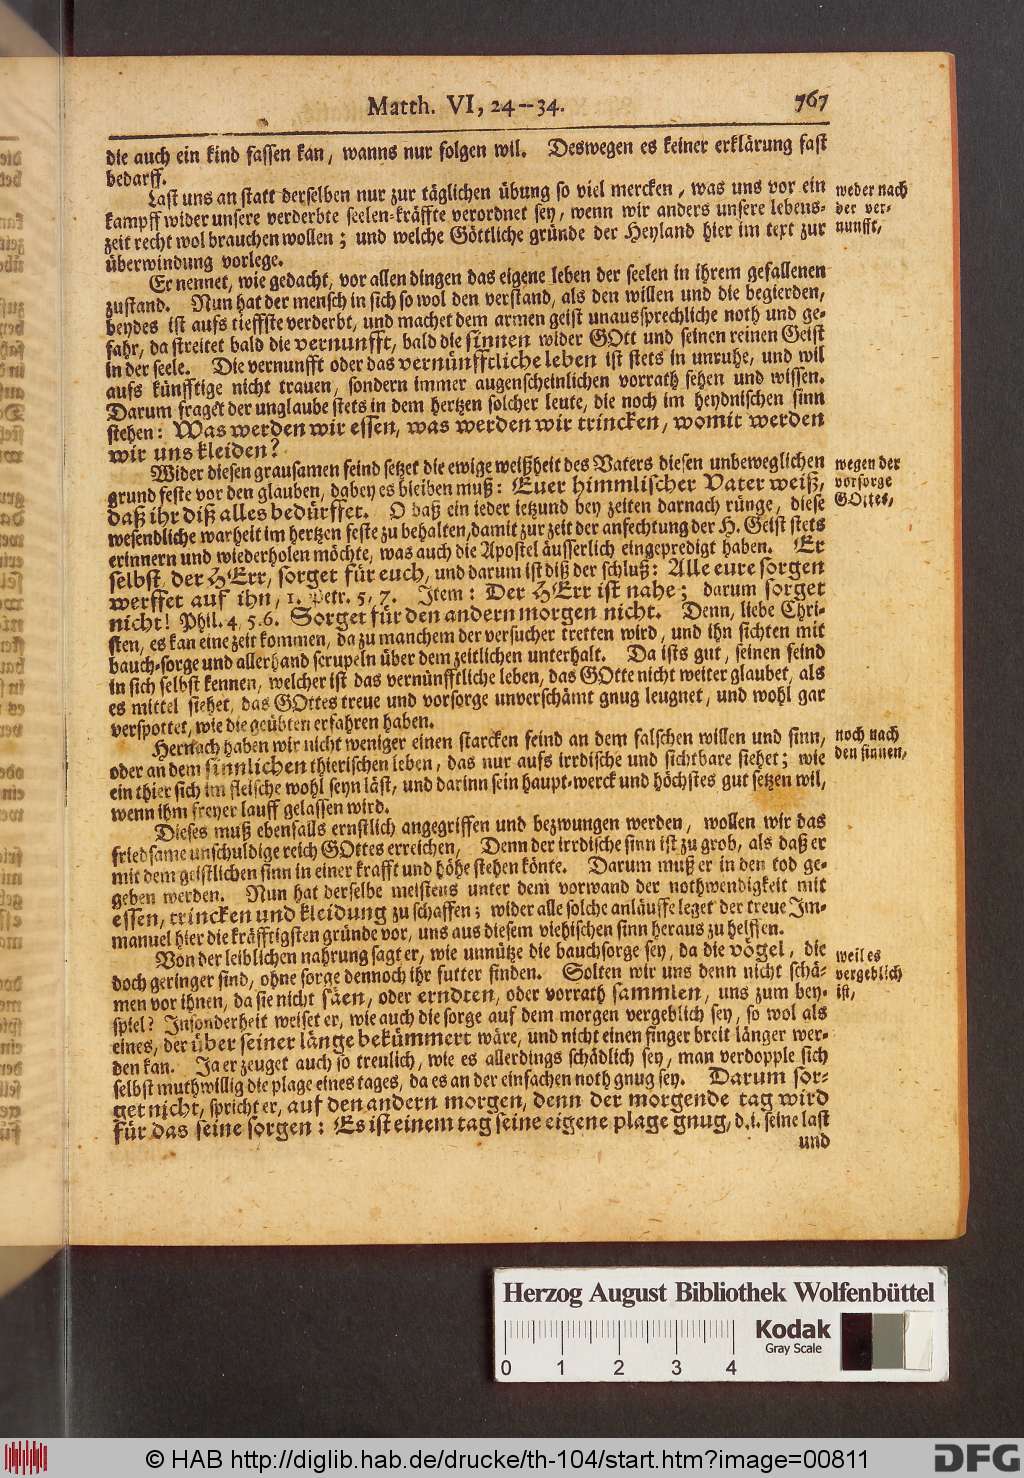 Matth. VI, 24—34. 767
die auch ein kind fassen kan, wanns nur folgen wil. Deswegen es keiner erklärung fast
bedarff.
Last uns an statt derselben nur zur täglichen übung so viel mercken, was uns vor ein
kampff wider unsere verderbte seelen-kräffte verordnet sey, wenn wir anders unsere lebens-
zeit recht wol brauchen wollen; und welche Göttliche gründe der Heyland hier im text zur
überwindung vorlege.
weder nach
der ver-
nunfft,
Er nennet, wie gedacht, vor allen dingen das eigene leben der seelen in ihrem gefallenen
zustand. Nun hat der mensch in sich so wol den verstand, als den willen und die begierden,
beydes ist aufs tieffste verderbt, und machet dem armen geist unaussprechliche noth und ge-
fahr, da streitet bald die vernunfft, bald die sinnen wider GOtt und seinen reinen Geist
in der seele. Die vernunfft oder das vernünfftliche leben ist stets in unruhe, und wil
aufs künfftige nicht trauen, sondern immer augenscheinlichen vorrath sehen und wissen.
Darum fraget der unglaube stets in dem hertzen solcher leute, die noch im heydnischen sinn
stehen: Was werden wir essen, was werden wir trincken, womit werden
wir uns kleiden?
Wider diesen grausamen feind setzet die ewige weißheit des Vaters diesen unbeweglichen
grund feste vor den glauben, dabey es bleiben muß: Euer himmlischer Vater weiß,
daß ihr diß alles bedürffet. O daß ein ieder ietzund bey zeiten darnach rünge, diese
wesendliche warheit im hertzen feste zu behalten, damit zur zeit der anfechtung der H. Geist stets
erinnern und wiederholen möchte, was auch die Apostel äusserlich eingepredigt haben. Er
selbst, der HErr, sorget für euch, und darum ist diß der schluß: Alle eure sorgen
werffet auf ihn, 1. Petr. 5, 7. Item: Der HErr ist nahe; darum sorget
nicht! Phil. 4, 5. 6. Sorget für den andern morgen nicht. Denn, liebe Chri-
sten, es kan eine zeit kommen, da zu manchem der versucher tretten wird, und ihn sichten mit
bauch-sorge und allerhand scrupeln über dem zeitlichen unterhalt. Da ists gut, seinen feind
in sich selbst kennen, welcher ist das vernünfftliche leben, das GOtte nicht weiter glaubet, als
es mittel siehet, das GOttes treue und vorsorge unverschämt gnug leugnet, und wohl gar
verspottet, wie die geübten erfahren haben.
wegen der
vorsorge
GOttes,
Hernach haben wir nicht weniger einen starcken feind an dem falschen willen und sinn,
oder an dem sinnlichen thierischen leben, das nur aufs irrdische und sichtbare siehet; wie
ein thier sich im fleische wohl seyn läst, und darinn sein haupt-werck und höchstes gut setzen wil,
wenn ihm freyer lauff gelassen wird.
noch nach
den sinnen,
Dieses muß ebenfalls ernstlich angegriffen und bezwungen werden, wollen wir das
friedsame unschuldige reich GOttes erreichen, Denn der irrdische sinn ist zu grob, als daß er
mit dem geistlichen sinn in einer krafft und höhe stehen könte. Darum muß er in den tod ge-
geben werden. Nun hat derselbe meistens unter dem vorwand der nothwendigkeit mit
essen, trincken und kleidung zu schaffen; wider alle solche anläuffe leget der treue Im-
manuel hier die kräfftigsten gründe vor, uns aus diesem viehischen sinn heraus zu helffen.
Von der leiblichen nahrung sagt er, wie unnütze die bauchsorge sey, da die vögel, die
doch geringer sind, ohne sorge dennoch ihr futter finden. Solten wir uns denn nicht schä-
men vor ihnen, da sie nicht säen, oder erndten, oder vorrath sammlen, uns zum bey-
spiel? Insonderheit weiset er, wie auch die sorge auf dem morgen vergeblich sey, so wol als
eines, der über seiner länge bekümmert wäre, und nicht einen finger breit länger wer-
den kan. Ja er zeuget auch so treulich, wie es allerdings schädlich sey, man verdopple sich
selbst muthwillig die plage eines tages, da es an der einfachen noth gnug sey. Darum sor-
get nicht, spricht er, auf den andern morgen, denn der morgende tag wird
für das seine sorgen: Es ist einem tag seine eigene plage gnug, d. i. seine last
und
weil es
vergeblich
ist,
Herzog August Bibliothek Wolfenbüttel
Kodak
Gray Scale
0 1 2 3 4
© HAB http://diglib.hab.de/drucke/th-104/start.htm?image=00811
DFG